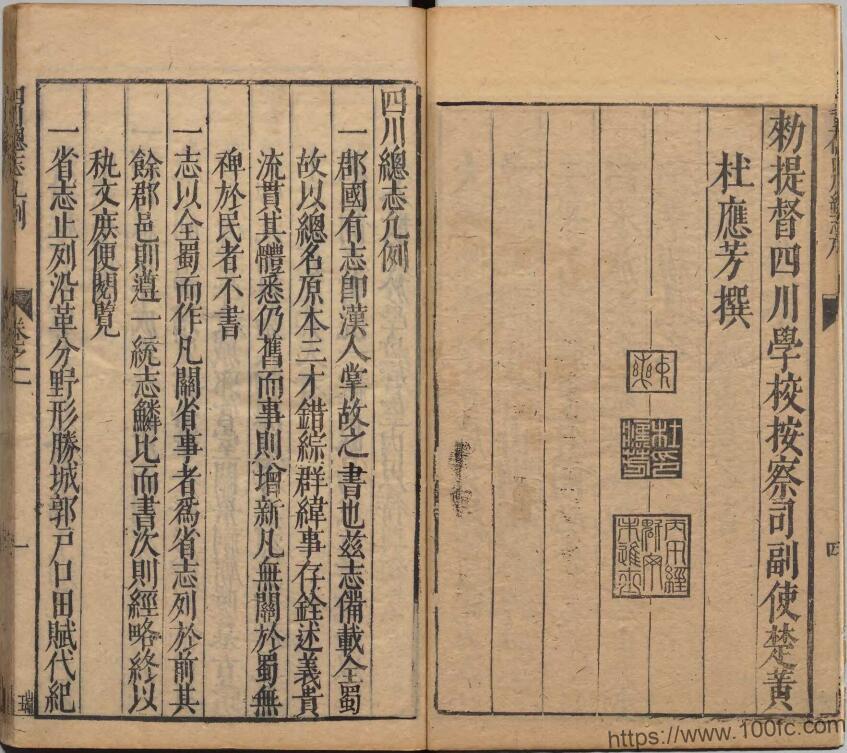 勑提督四川學校按察司副使楚黃
杜應芳撰
四川總志凡例
一郡國有志卽漢人掌故之書也茲志備載全蜀
故以總名原本三才錯綜群緯事存銓述義貴
流貫其體悉仍舊而事則增新凡無關於蜀無
裨於民者不書
一志以全蜀而作凡關省事者爲省志列於前其
餘郡邑則遵一統志鱗比而書次則經略終以
秇文庶便閱覽
一省志止列沿革分野形勝城郭戶口田賦代紀
四川總志凡例
卷之一
一
四
https://www.100fc.com